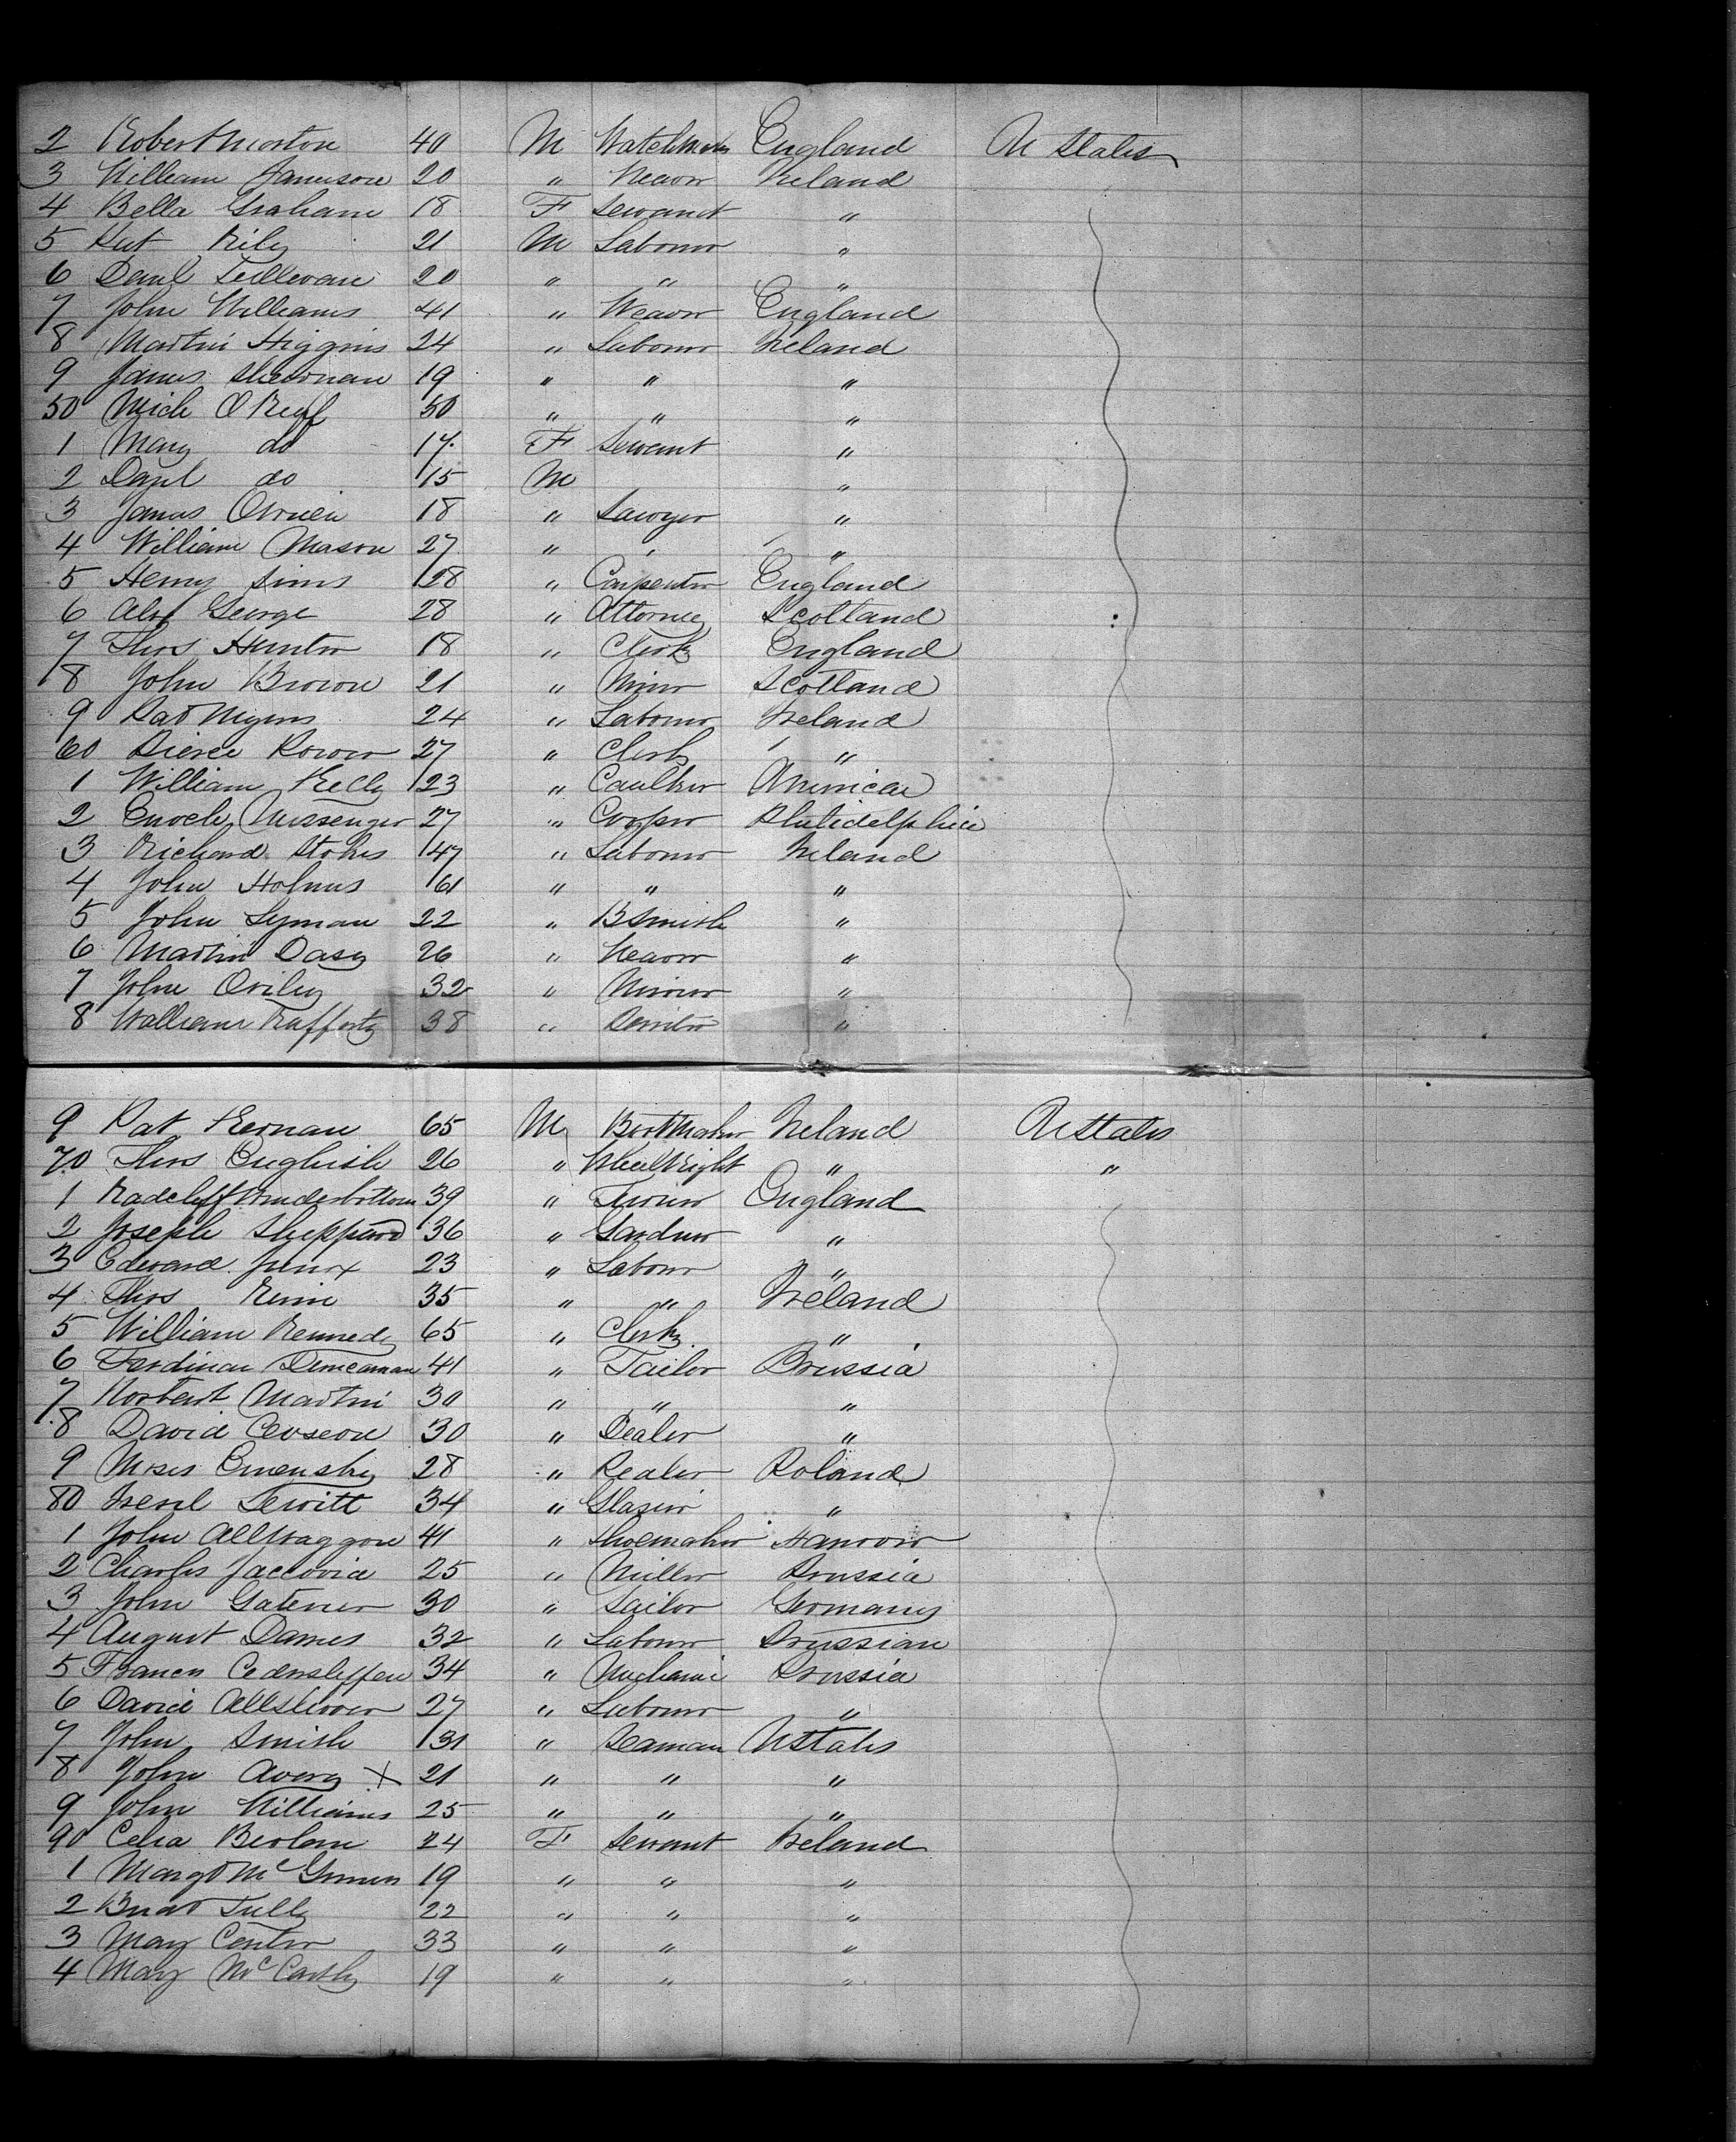 2 Robert Morton 40 M Watchman England U States
3 William Jameson 20 " Weaver Ireland
4 Bella Graham 18 F Servant "
5 Pat Rily 21 M Labourer "
6 Danl 20 " " "
7 John Williams 41 " Weaver England
8 Martin Higgins 24 " Labourer Ireland
9 James 19 " " "
50 Mich 50 " " "
1 Mary do 17 F Servant "
2 Danl do 15 M "
3 James Obrien 18 " Sawyer "
4 William Mason 27 " "
5 Henry Sims 28 " Carpenter England
6 Alex George 28 " Attorney Scotland
7 Thos Hunter 18 " Clerk England
8 John Brown 21 " Miner Scotland
9 Pat Myers 24 " Labourer Ireland
60 Pierce Power 27 " Clerk "
1 William Kelly 23 " Caulker America
2 Enoch Messenger 27 " Cooper Philidelphia
3 Richard Stokes 47 " Labourer Ireland
4 John Holmes 61 " " "
5 John Lyman 22 " BSmith "
6 Martin Dasy 26 " Weaver "
7 John Oriley 32 " "
8 William Rafferty 38 " "
9 Pat Kernan 65 M Bootmaker Ireland UStates
70 Thos English 26 " WheelWright " "
1 Radcliff 39 " England
2 Joseph Sheppard 36 " Gardner "
3 Edward 23 " Labour "
4 Thos 35 " " Ireland
5 William Kennedy 65 " Clerk "
6 Ferdinan 41 " Tailor Prussia
7 Norbert Martin 30 " " "
8 David 30 " Dealer "
9 Moses 28 " Dealer Poland
80 Lewitt 34 " Glasier "
1 John Allwaggon 41 " Shoemaker Hanover
2 Charles 25 " Miller Prussia
3 John 30 " Germany
4 August Dames 32 " Labourer Prussian
5 34 " Mechanic Prussia
6 David 27 " Labourer "
7 John Smith 31 " Seaman UStates
8 John Avery X 21 " " "
9 John Williams 25 " " "
90 Celia 24 F Servant Ireland
1 Margt 19 " " "
2 Tully 22 " " "
3 Mary 33 " " "
4 Mary McCarthy 19 " " "